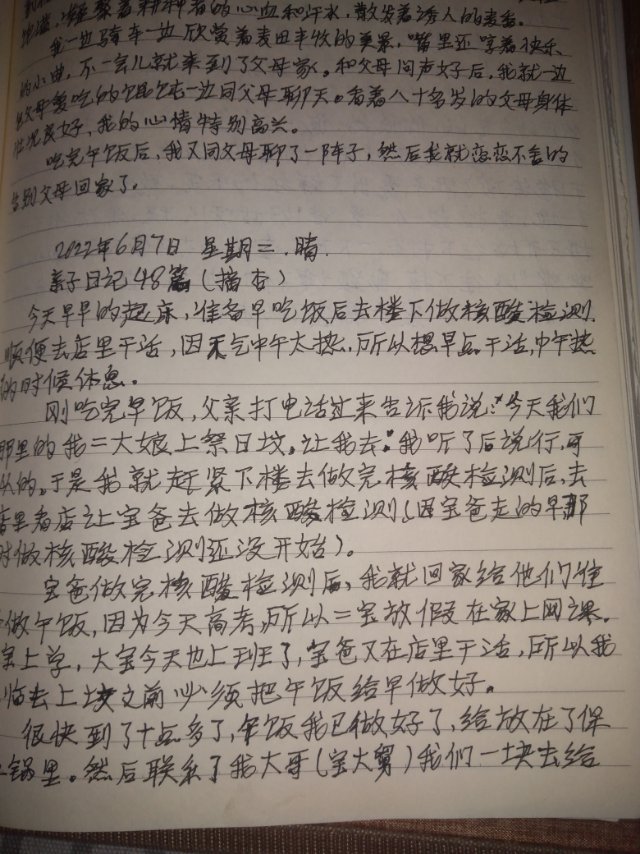 凝聚着耕种者的心血和汗水,散发着诱人的麦香。
我一边骑车一边欣赏着麦田丰收的美景,嘴里还哼着快乐
的小曲,不一会儿就来到了父母家。和父母问声好后,我就一边
父母爱吃的馄饨一边同父母聊天。看着八十多岁的父母身体
状况良好,我的心情特别高兴。
吃完午饭后,我又同父母聊了一阵子,然后我就恋恋不舍的
告别父母回家了。
2022年6月7日 星期二.晴.
亲子日记48篇(摘杏)
今天早早的起床,准备早吃饭后去楼下做核酸检测.
顺便去店里干活,因天气中午太热.所以想早点干活,中午热
的时候休息.
刚吃完早饭,父亲打电话过来告诉我说:“今天我们
那里的我二大娘上祭日坟。让我去.”我听了后说行,可
以的。于是我就赶紧下楼去做完核酸检测后,去
店里看店让宝爸去做核酸检测(因宝爸走的早那
时做核酸检测还没开始)。
宝爸做完核酸检测后,我就回家给他们佳
做午饭,因为今天高考,所以二宝放假在家上网课.
宝上学,大宝今天也上班了,宝爸又在店里干活,所以我
临去上坟之前必须把午饭给早做好。
很快到了十点多了,午饭我已做好了,给放在了保
锅里。然后联系了我大哥(宝大舅)我们一块去给